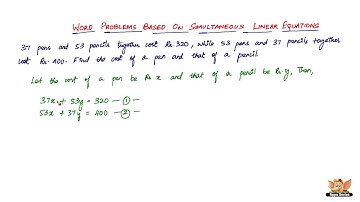 Word Problems Based on Simultaneous Linear Equations
37 pens and 53 pencils together cost Rs. 320, while 53 pens and 37 pencils together
cost Rs. 400. Find the cost of a pen and that of a pencil.
Let the cost of a pen be Rs. x and that of a pencil be Rs. y, Then,
37x + 53y = 320 — ① —
53x + 37y = 400 — ② —